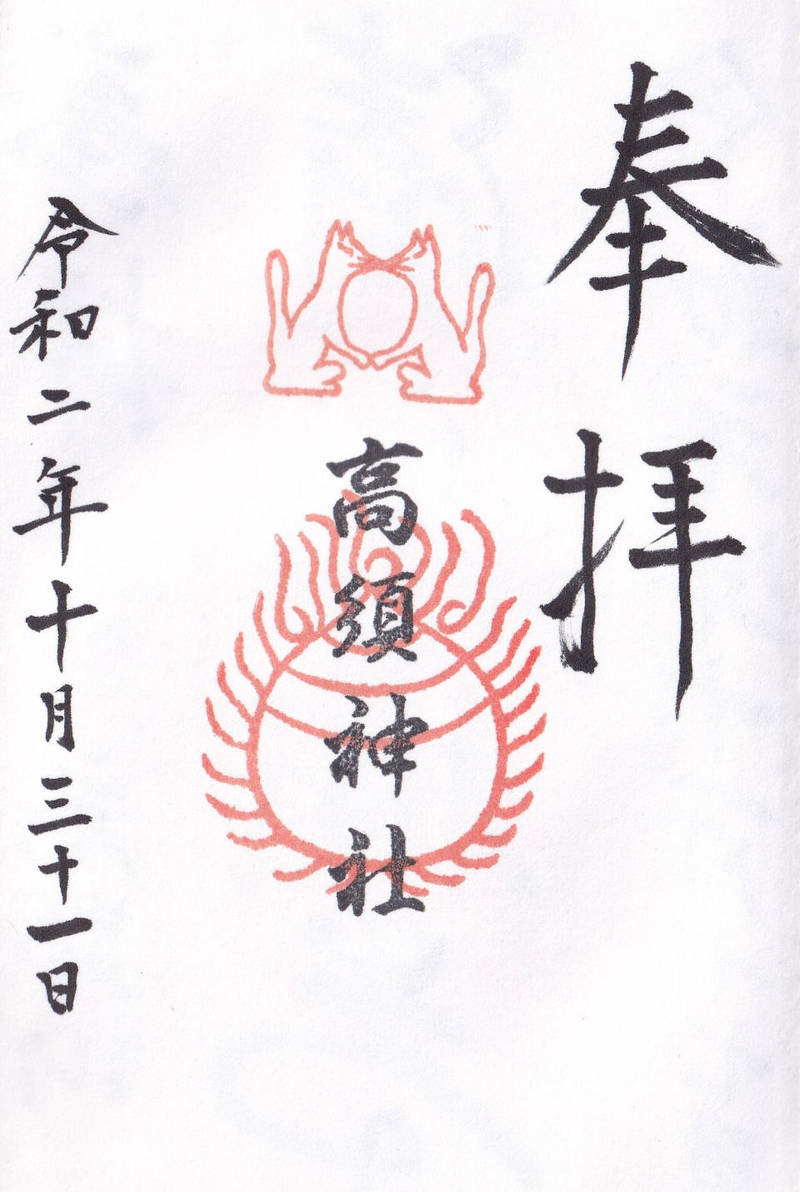 奉拝
高須神社
令和二年十月三十一日